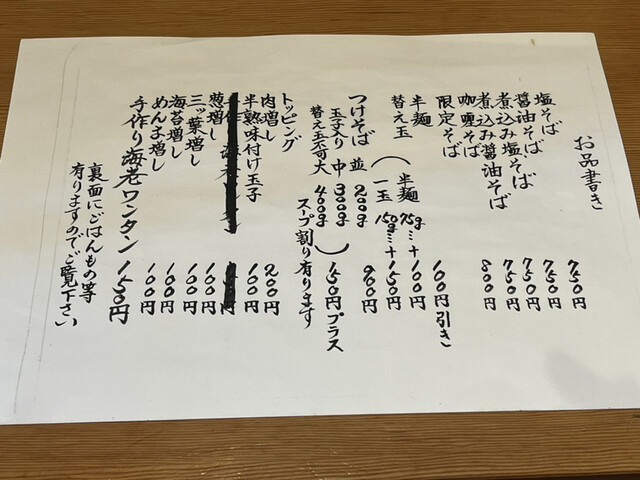 お品書き
塩そば 750円
醤油そば 750円
煮込み塩そば 750円
煮込み醤油そば 750円
咖喱そば 800円
限定そば
半麺 100円引き
替え玉 ( 半麺 75g…+100円
一玉 150g…+150円
つけそば 並 200g 900円
玉子入り 中 300g
替え玉不可 大 400g ) 150円プラス
スープ割り有ります
トッピング
肉増し 200円
半熟味付け玉子 100円
葱増し 100円
三ッ葉増し 100円
海苔増し 100円
めんま増し 100円
手作り海老ワンタン 150円
裏面にごはんもの等
有りますのでご覧下さい